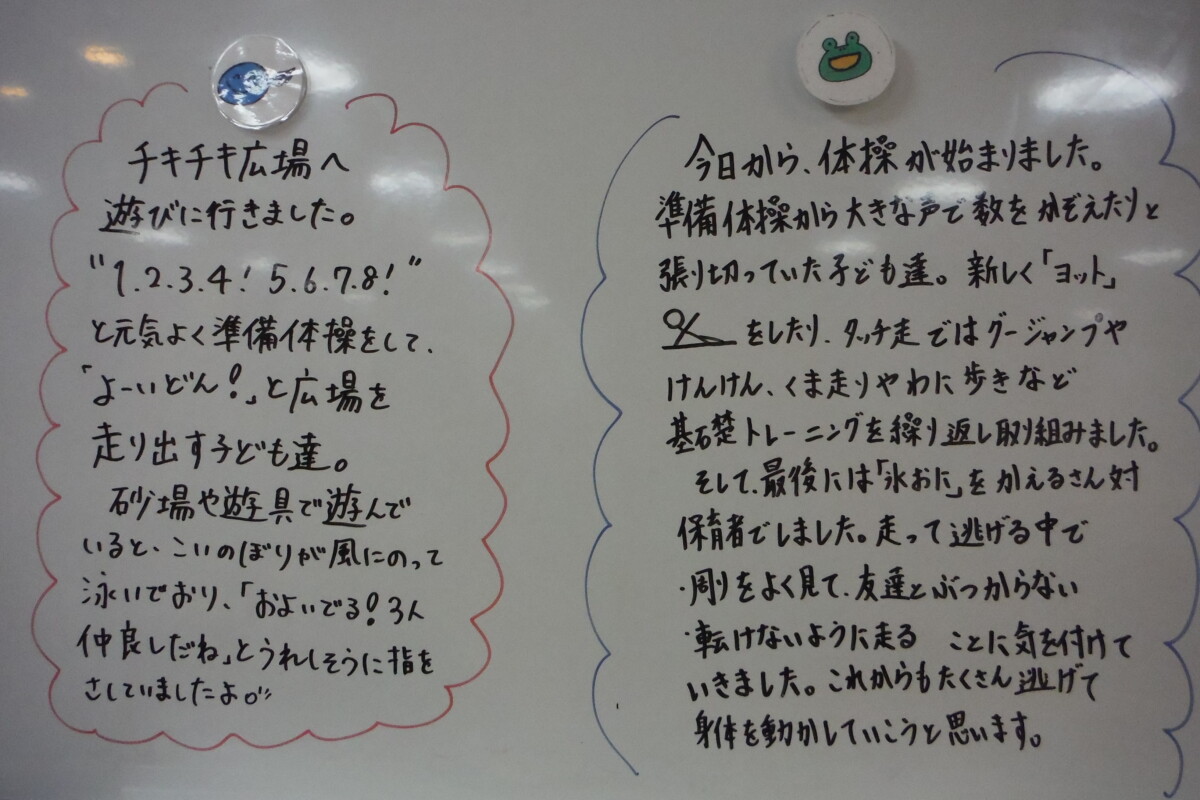 チキチキ広場へ
遊びに行きました。
"1.2.3.4! 5.6.7.8!"
と元気よく準備体操をして、
「よーいどん!」と広場を
走り出す子ども達。
砂場や遊具で遊んで
いると、こいのぼりが風にのって
泳いでおり、「およいでる!3人
仲良しだね」とうれしそうに指を
さしていましたよ。
今日から、体操が始まりました。
準備体操から大きな声で数をかぞえたりと
張り切っていた子ども達。新しく「ヨット」
をしたり、タッチ走ではグージャンプや
けんけん、くま走りやわに歩きなど
基礎トレーニングを繰り返し取り組みました。
そして、最後には「氷おに」をかえるさん対
保育者でしました。走って逃げる中で
・周りをよく見て、友達とぶつからない
・転けないように走る ことに気を付けて
いきました。これからもたくさん逃げて
身体を動かしていこうと思います。